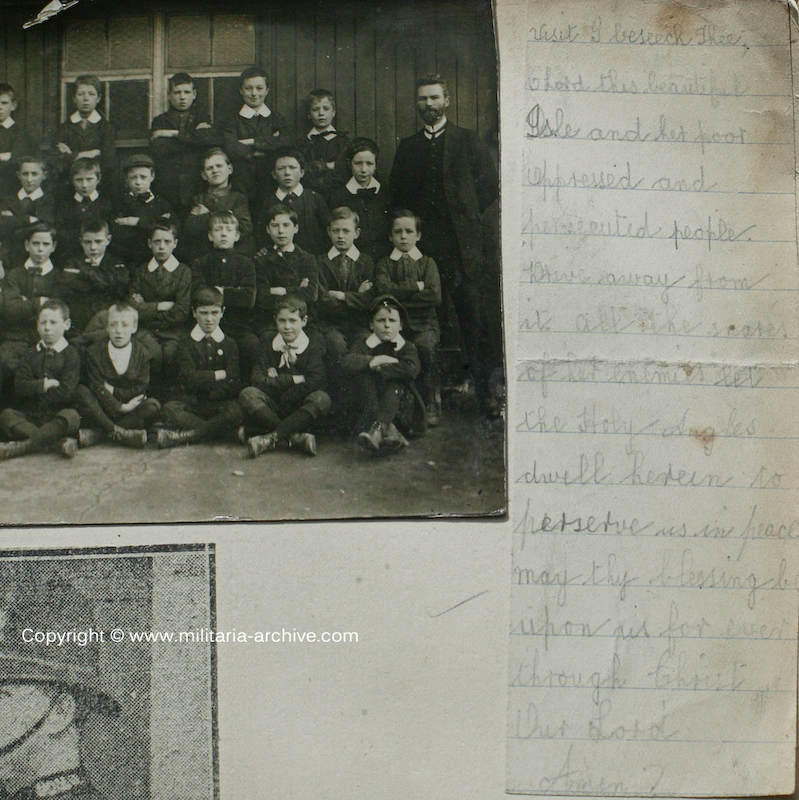 Visit I beseech Thee,
O Lord this beautiful
Isle and her poor
oppressed and
persecuted people.
Drive away from
it all the snares
of her enemies let
the Holy Angles
dwell herein to
perserve us in peace
may thy blessing be
upon us for ever
through Christ
Our Lord
Amen
Copyright © www.militaria-archive.com